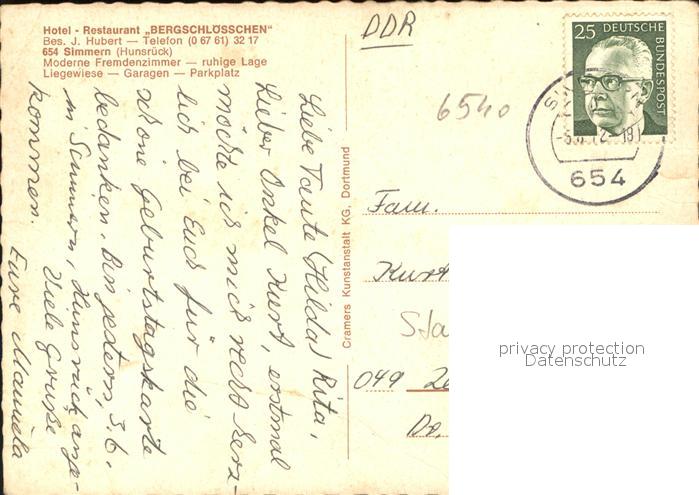 Hotel - Restaurant „BERGSCHLÖSSCHEN"
Bes. J. Hubert — Telefon (0 67 61) 32 17
654 Simmern (Hunsrück)
Moderne Fremdenzimmer — ruhige Lage
Liegewiese — Garagen — Parkplatz
DDR
25 DEUTSCHE
BUNDESPOST
6540
654
Liebe Tante (Hilda) Rita,
Lieber Onkel Kurt, erstmal
möchte ich mich recht herz-
lich bei Euch für die
schöne Geburtstagskarte
bedanken. Bin gestern, 3.6.
in Simmern, Hunsrück ange-
kommen.
Viele Grüße
Eure Manuela
Cramers Kunstanstalt KG, Dortmund
Fam.
Kurt
Sta
049
privacy protection
Datenschutz